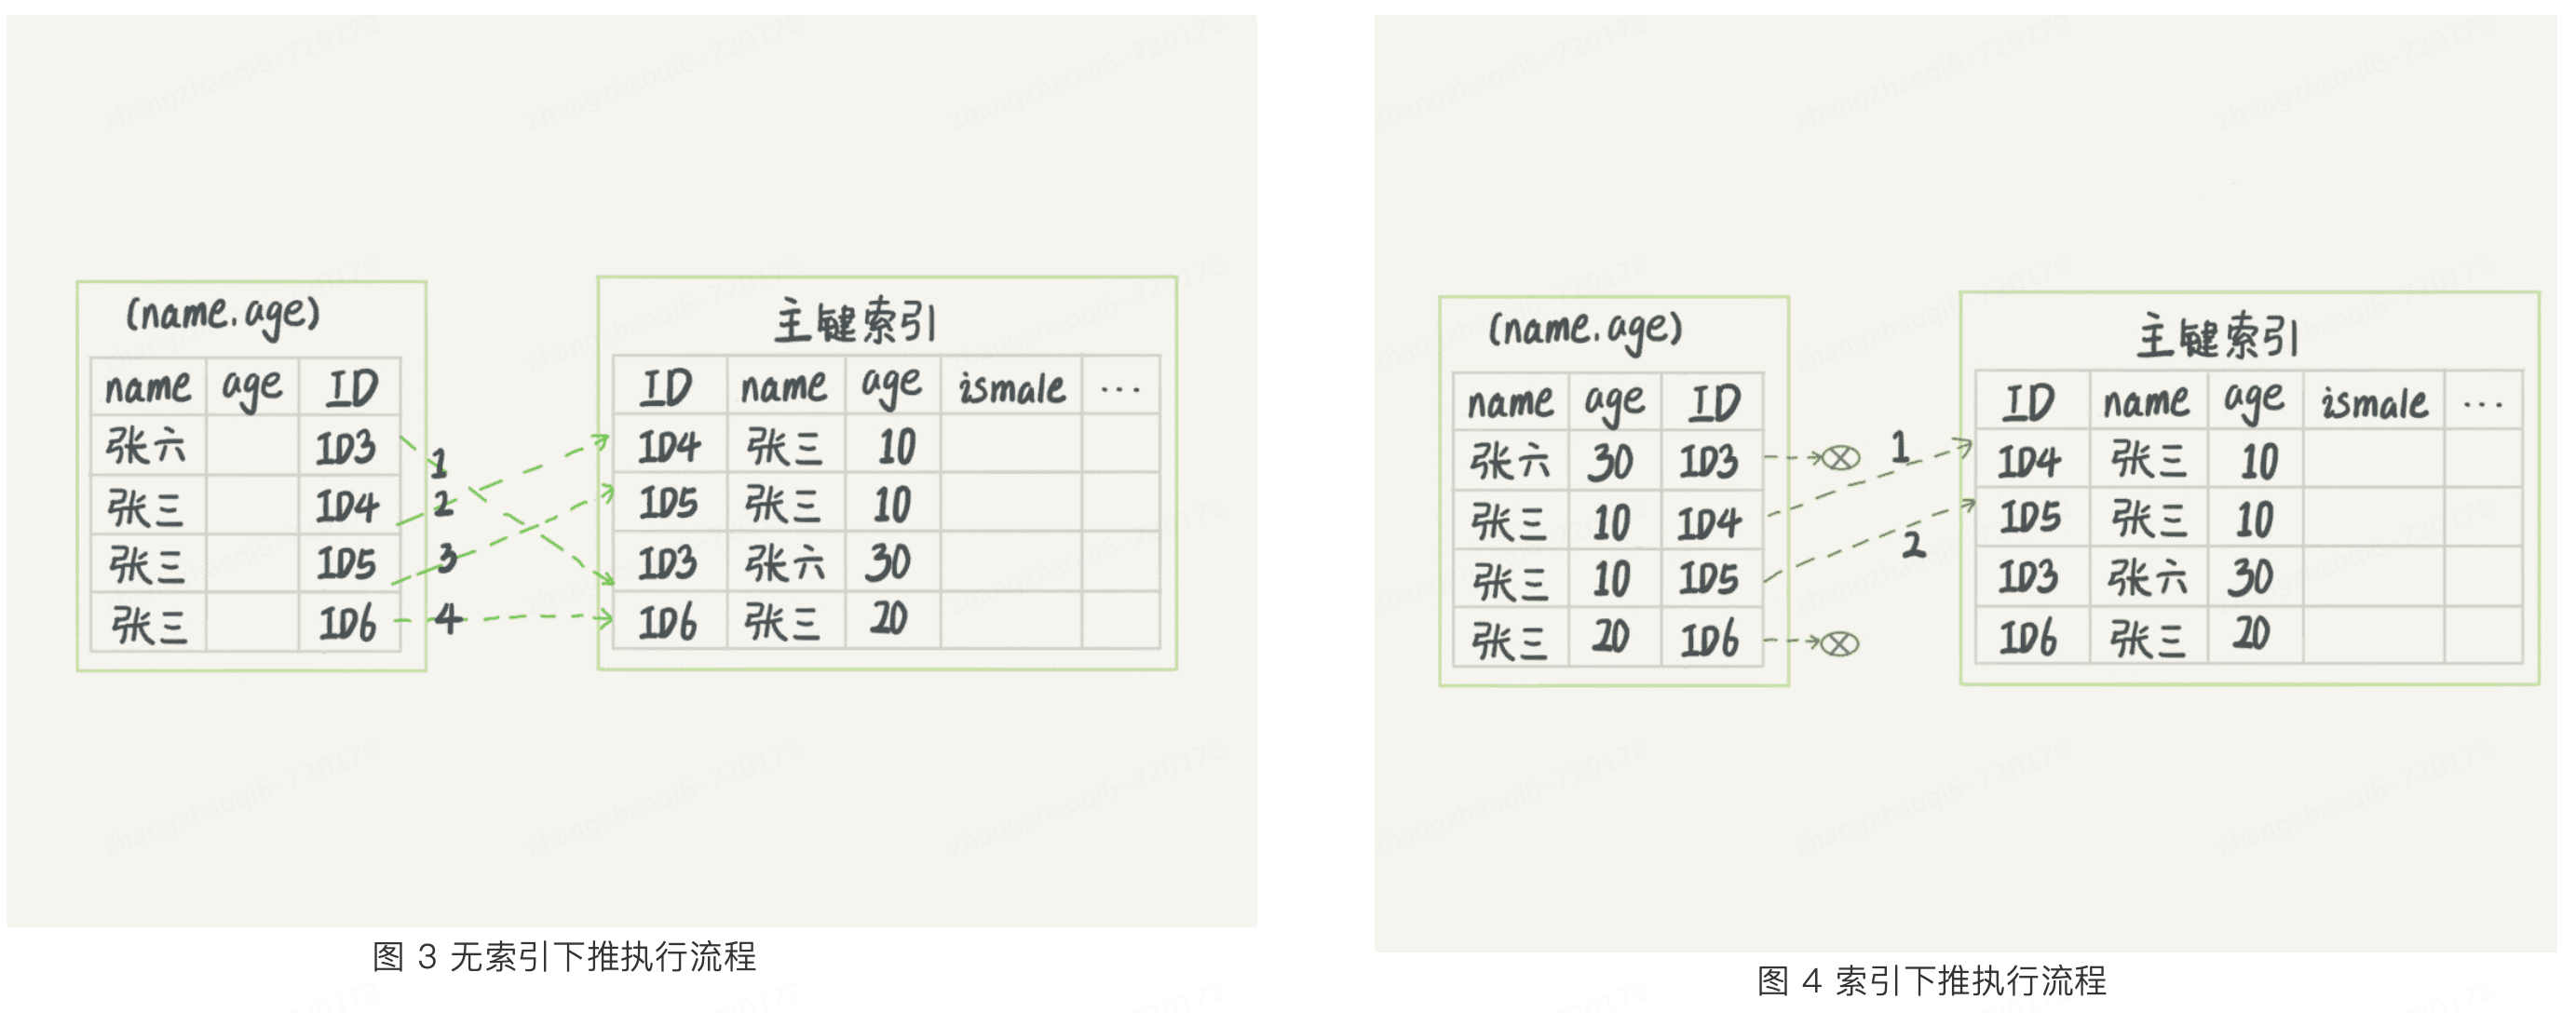 (name.age)
name age ID
张六 ID3
张三 ID4
张三 ID5
张三 ID6
1
2
3
4
主键索引
ID name age ismale ...
ID4 张三 10
ID5 张三 10
ID3 张六 30
ID6 张三 20
图 3 无索引下推执行流程
(name.age)
name age ID
张六 30 ID3
张三 10 ID4
张三 10 ID5
张三 20 ID6
1
2
主键索引
ID name age ismale ...
ID4 张三 10
ID5 张三 10
ID3 张六 30
ID6 张三 20
图 4 索引下推执行流程
zhangzhaoqi6-720178